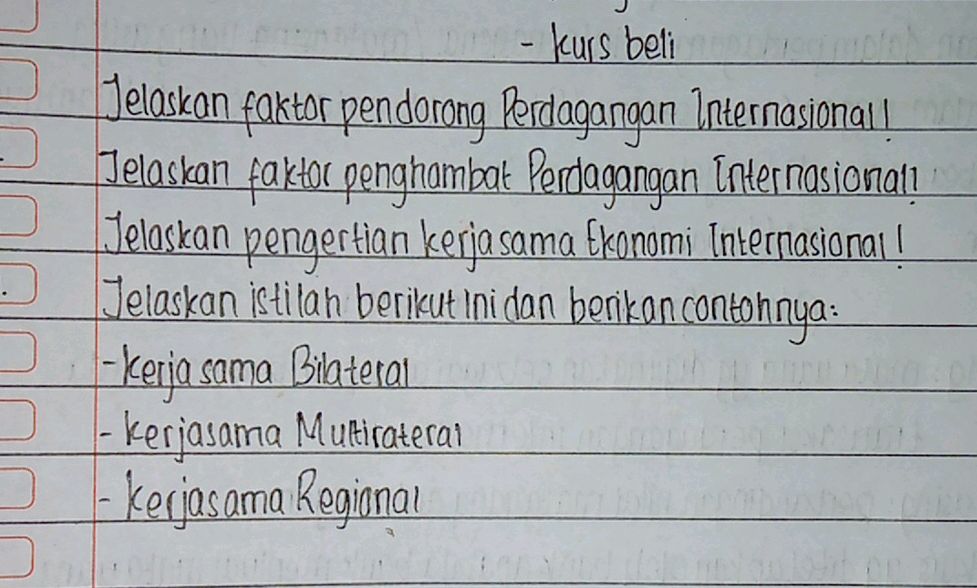 - kurs beli
Jelaskan faktor pendorong Perdagangan Internasional!
Jelaskan faktor penghambat Perdagangan Internasional!
Jelaskan pengertian kerjasama Ekonomi Internasional!
Jelaskan istilah berikut ini dan berikan contohnya:
- kerja sama Bilateral
- kerjasama Multirateral
- kerjasama Regional